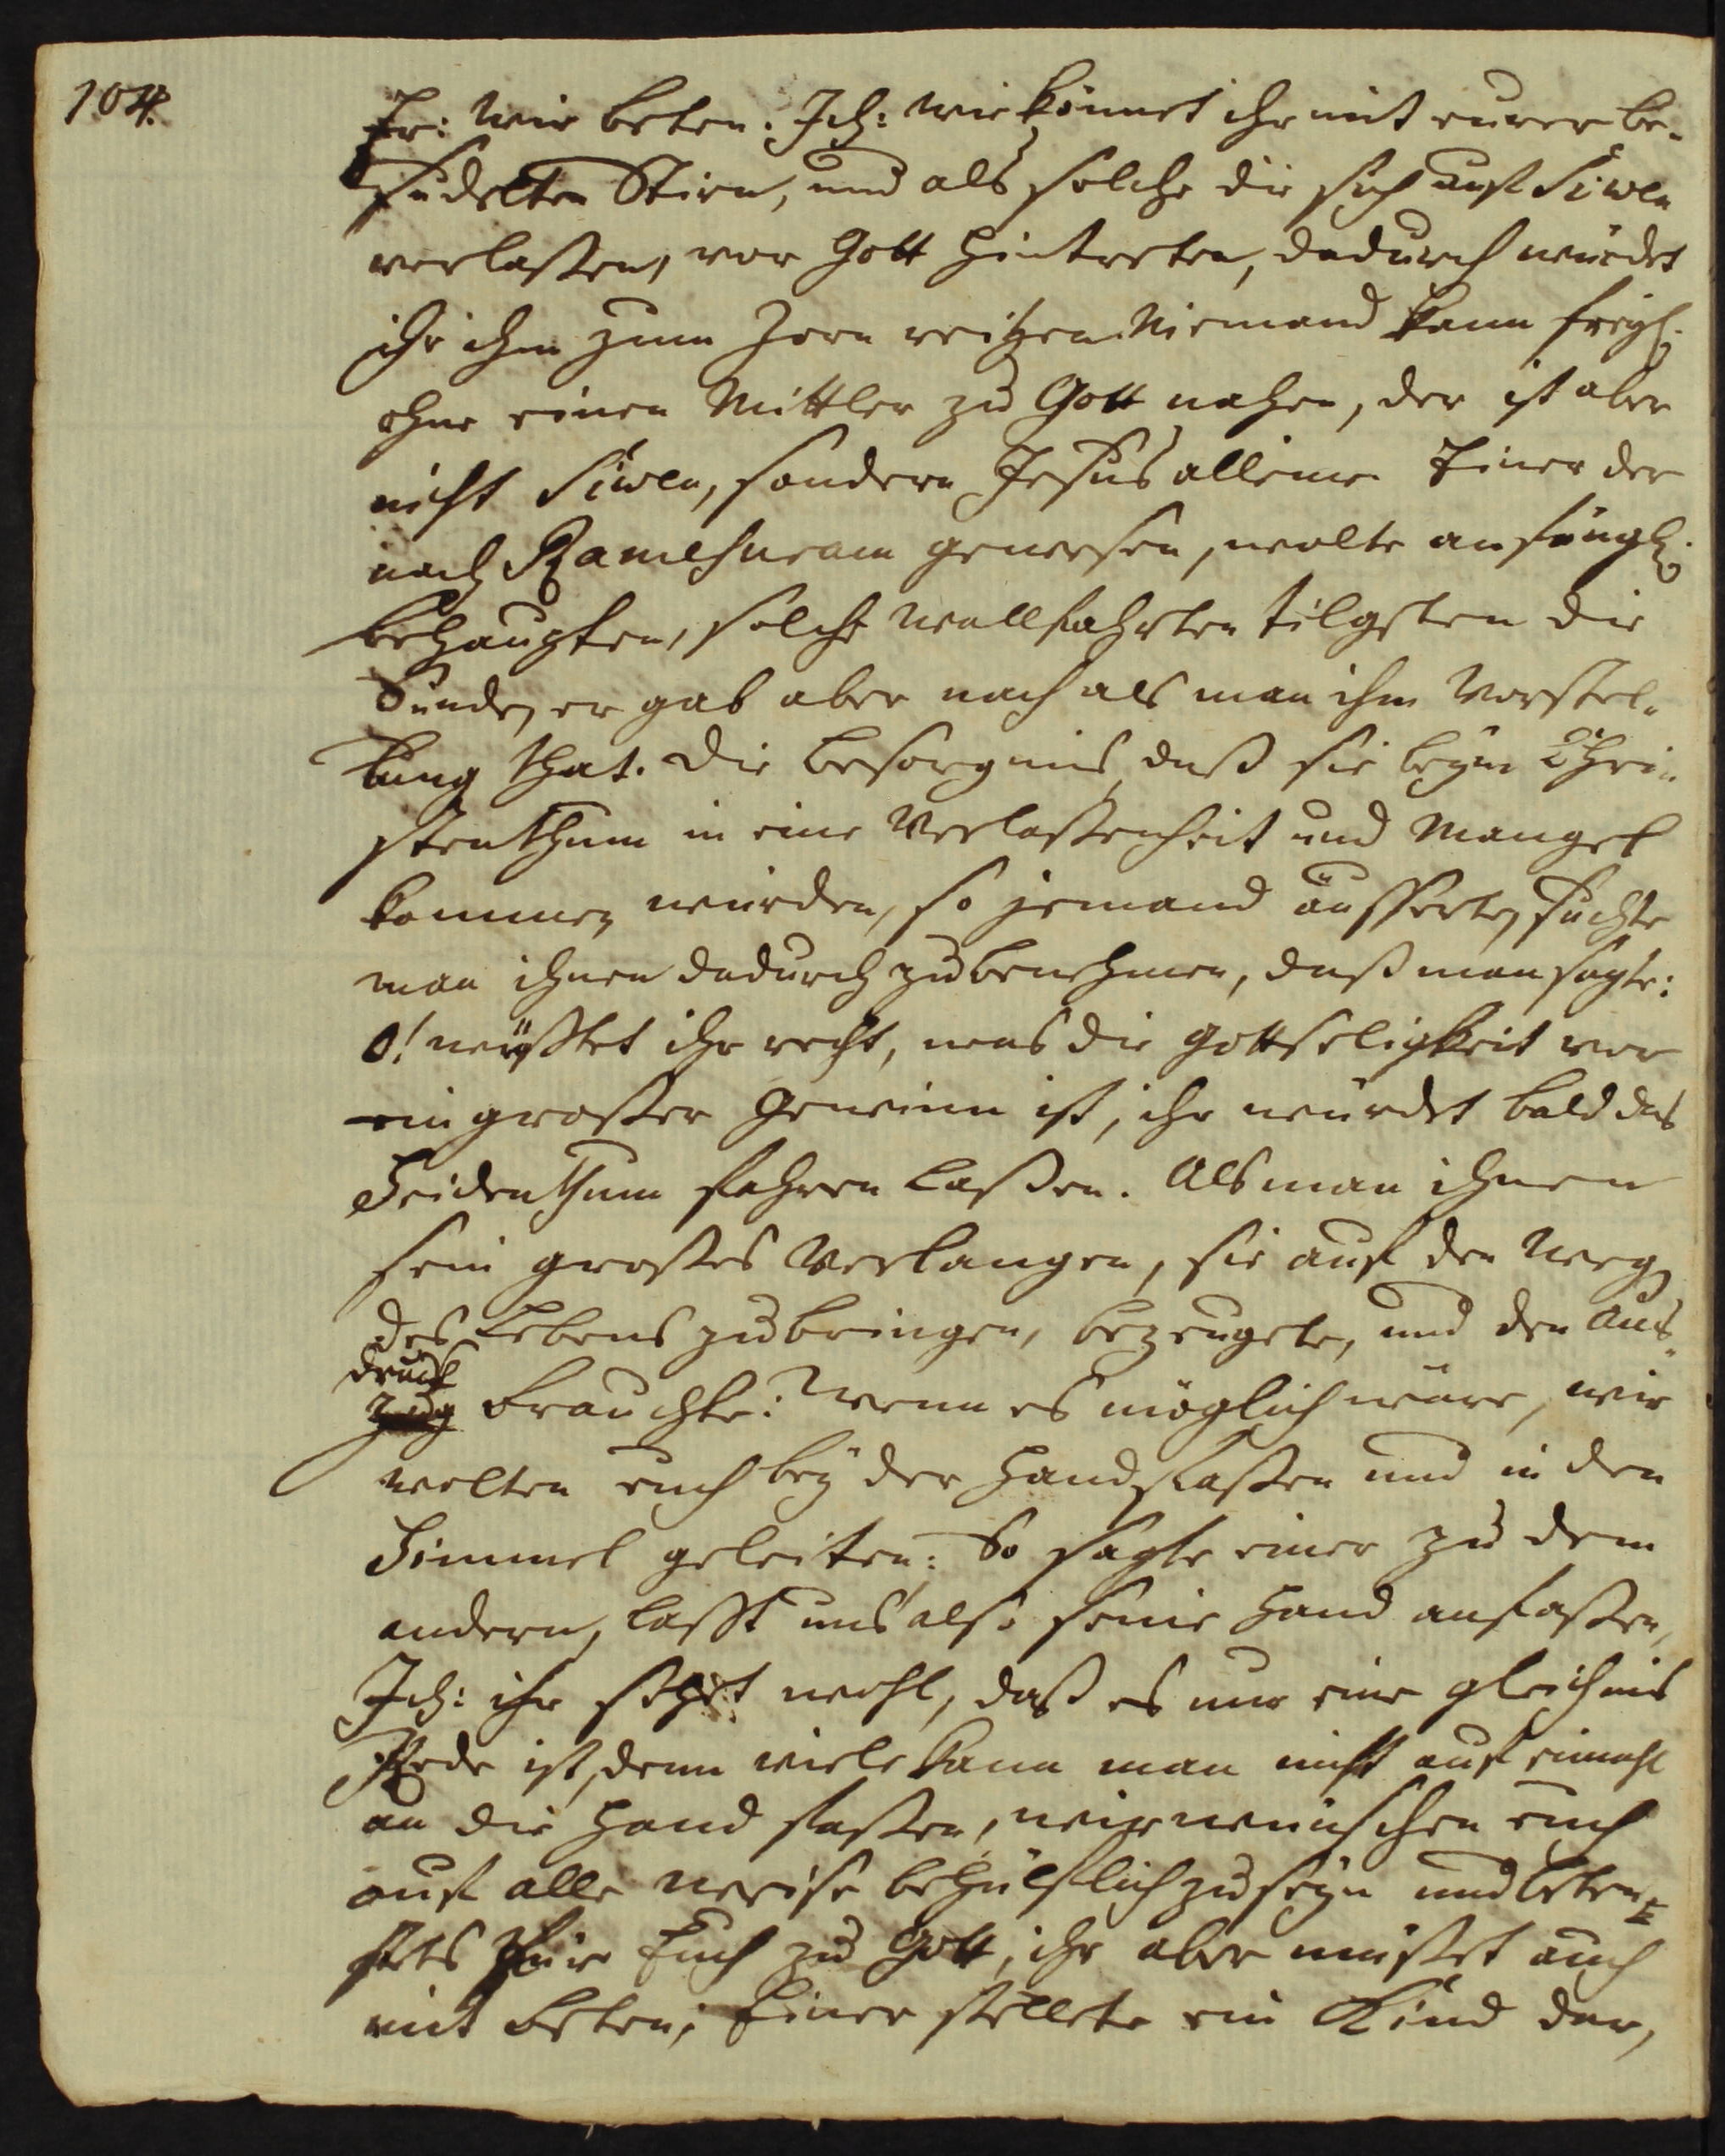 104.
Er: Wir beten. Ich: wie könnet ihr mit eurer be-
sudelten Stirn, und als solche die sich auf Siwen
verlaßen, vor Gott hintreten, dadurch würdet
ihr ihn zum Zorn reitzen. Niemand kann freyl.
ohne einen Mittler zu Gott nahen, der ist aber
nicht Siwen, sondern Jesus alleine. Einer der
nach Ramesuram gewesen, wolte anfängl.
behaupten, solche Wallfahrten tilgten die
Sünde, er gab aber nach als man ihm Vorstel-
lung that. Die Besorgnis, daß sie beym Chri-
stenthum in eine Verlaßenheit und Mangel
kommen würden, so jemand äusserte, suchte
man ihnen dadurch zu benehmen, daß man sagte:
O! wüsstet ihr recht, was die Gottseligkeit vor
ein großer Gewinn ist, ihr würdet bald das
Heidenthum fahren laßen. Als man ihnen
sein großes Verlangen, sie auf den Weg
des Lebens zu bringen, bezeugete, und den Aus-
druck
zug brauchte: Wenn es möglich wäre, wir
wolten euch bey der Hand faßen und in den
Himmel geleiten: So sagte einer zu dem
andern, lasst uns also seine Hand anfaßen,
Ich: ihr sehet wohl, daß es nur eine gleichnis
Rede ist, denn viele kann man nicht auf einmahl
an die Hand faßen, wir wünschen euch
auf alle Weise behülflich zu seyn und beten
stets für Euch zu Gott, ihr aber müßet auch
mit beten; Einer stellete ein Kind dar,